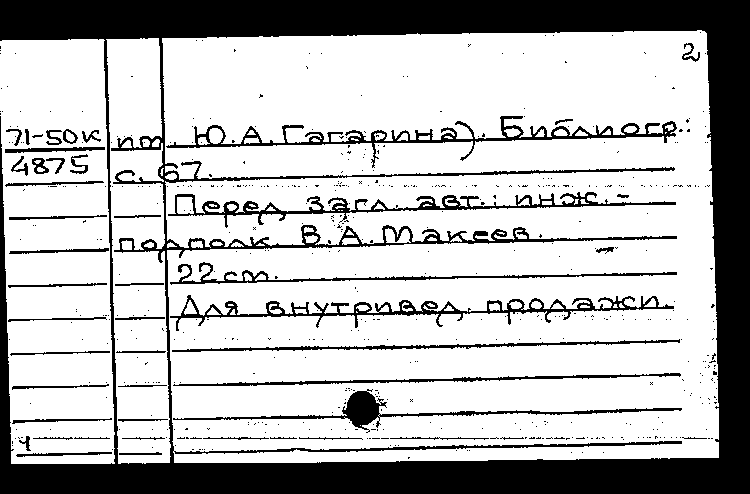 2
71-50к им. Ю.А.Гагарина). Библиогр.:
4875 с. 67.
Перед загл. авт.: инж.-
подполк. В.А.Макеев.
22 см.
Для внутривед. продажи.